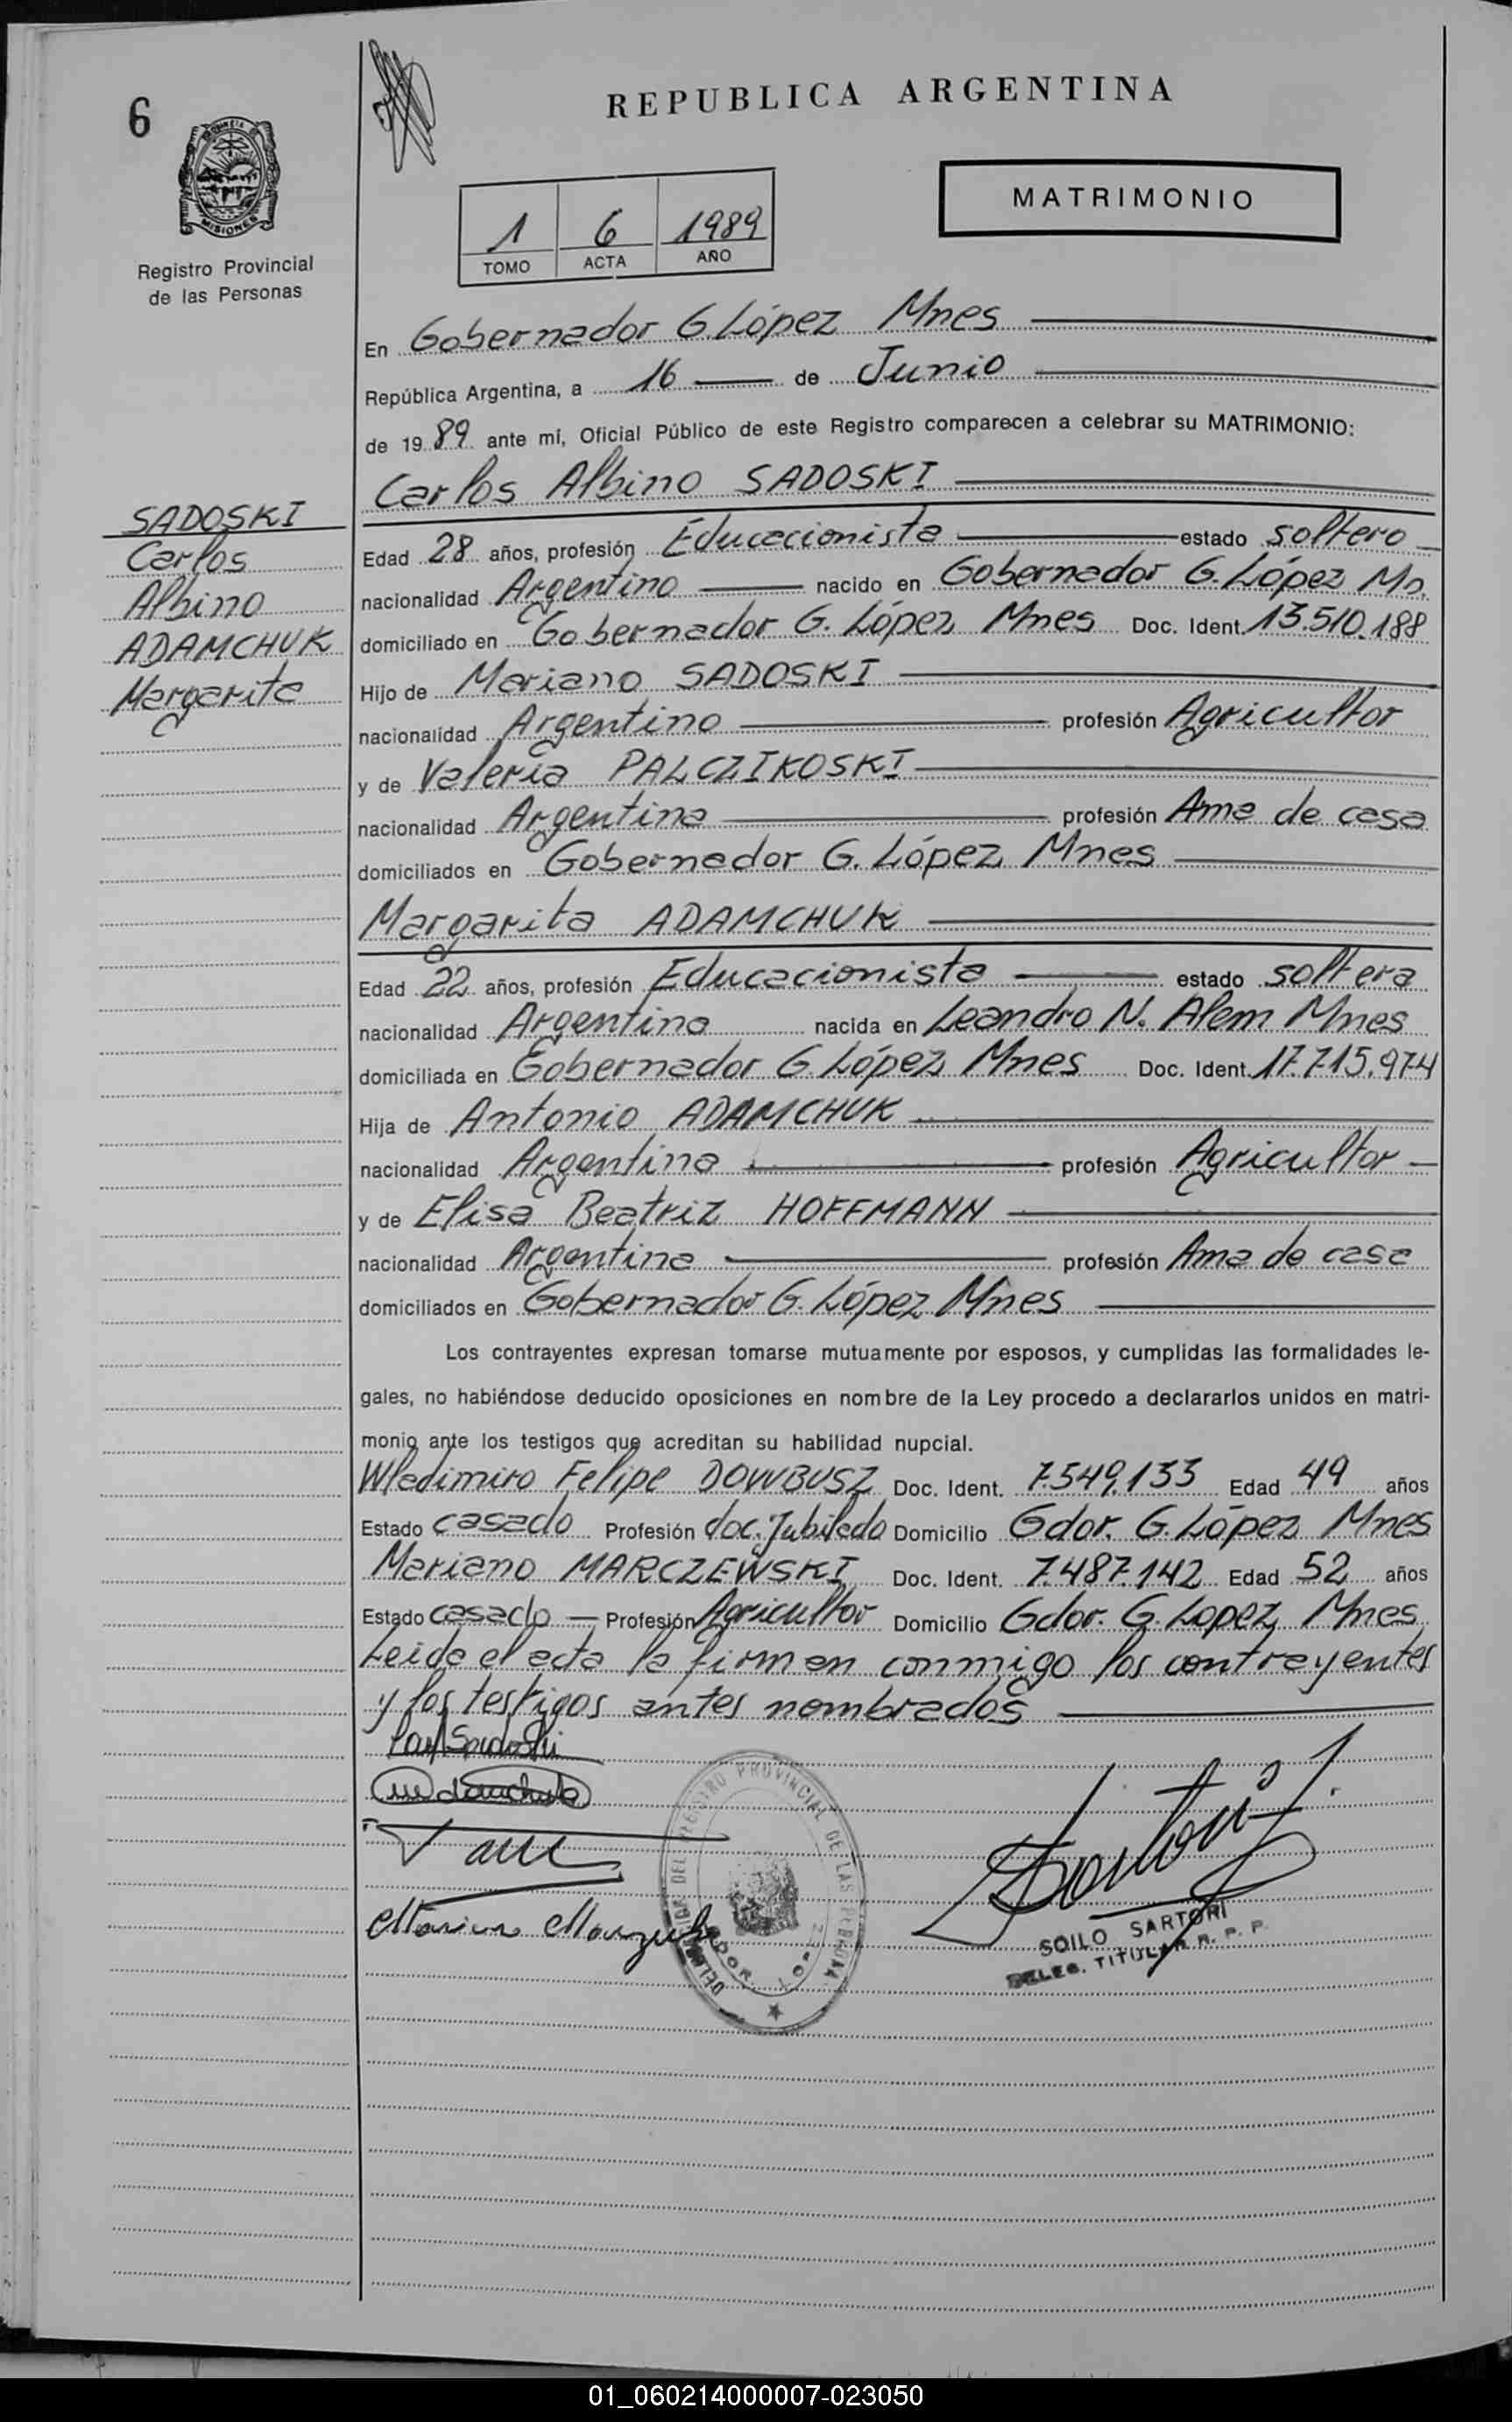 6
REPUBLICA ARGENTINA
MATRIMONIO
MISIONES
Registro Provincial
de las Personas
1 6 1989
TOMO ACTA AÑO
En Gobernador G. López Mnes
República Argentina, a 16 de Junio
de 1989 ante mí, Oficial Público de este Registro comparecen a celebrar su MATRIMONIO:
Carlos Albino SADOSKI
SADOSKI
Carlos
Albino
ADAMCHUK
Margarita
Edad 28 años, profesión Educacionista estado soltero
nacionalidad Argentino nacido en Gobernador G. López Mn.
domiciliado en Gobernador G. López Mnes Doc. Ident. 13.510.188
Hijo de Mariano SADOSKI
nacionalidad Argentino profesión Agricultor
y de Valeria PALCZIKOSKI
nacionalidad Argentina profesión Ama de casa
domiciliados en Gobernador G. López Mnes
Margarita ADAMCHUK
Edad 22 años, profesión Educacionista estado soltera
nacionalidad Argentina nacida en Leandro N. Alem Mnes
domiciliada en Gobernador G. López Mnes Doc. Ident. 17.715.974
Hija de Antonio ADAMCHUK
nacionalidad Argentina profesión Agricultor
y de Elisa Beatriz HOFFMANN
nacionalidad Argentina profesión Ama de casa
domiciliados en Gobernador G. López Mnes
Los contrayentes expresan tomarse mutuamente por esposos, y cumplidas las formalidades le-
gales, no habiéndose deducido oposiciones en nombre de la Ley procedo a declararlos unidos en matri-
monio ante los testigos que acreditan su habilidad nupcial.
Wladimiro Felipe DOWBUSZ Doc. Ident. 7.549.133 Edad 49 años
Estado casado Profesión doc. Jubilado Domicilio Gdor. G. López Mnes
Mariano MARCZEWSKI Doc. Ident. 7.487.142 Edad 52 años
Estado casado Profesión Agricultor Domicilio Gdor. G. Lopez Mnes
Leida el acta la firman conmigo los contrayentes
y los testigos antes nombrados
REGISTRO PROVINCIAL DE LAS PERSONAS
SOILO SARTORI
DELEG. TITULAR R. P. P.
01_060214000007-023050